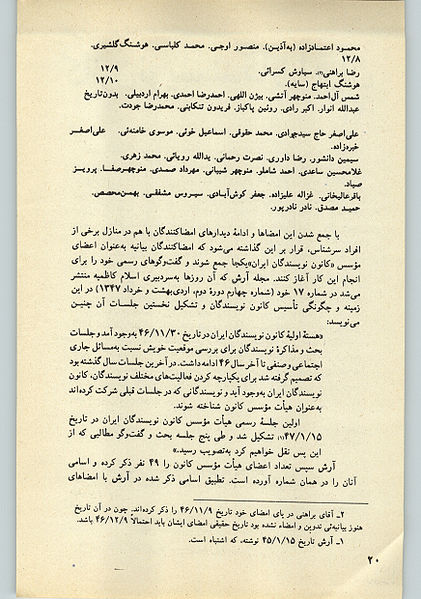 محمود اعتمادزاده (به‌آذین). منصور اوجی. محمد کلباسی. هوشنگ گلشیری.
۱۲/۸
رضا براهنی«۲». سیاوش کسرائی. ۱۲/۹
هوشنگ ابتهاج (سایه). ۱۲/۱۰
شمس آل‌احمد. منوچهر آتشی. بیژن اللهی. احمدرضا احمدی. بهرام اردبیلی. بدون‌تاریخ
عبدالله انوار. اکبر رادی. روئین پاکباز. فریدون تنکابنی. محمدرضا جودت.
علی‌اصغر حاج سیدجوادی. محمد حقوقی. اسماعیل خوئی. موسوی خامنه‌ئی. علی‌اصغر
خبره‌زاده.
سیمین دانشور. رضا داوری. نصرت رحمانی. یدالله رویائی. محمد زهری.
غلامحسین ساعدی. احمد شاملو. منوچهر شیبانی. مهرداد صمدی. منوچهرصفا. پرویز
صیاد.
باقرعالیخانی. غزاله علیزاده. جعفر کوش‌آبادی. سیروس مشفقی. بهمن‌محصص.
حمید مصدق. نادر نادرپور.
با جمع شدن این امضاها و ادامهٔ دیدارهای امضاکنندگان با هم در منازل برخی از
افراد سرشناس، قرار بر این گذاشته می‌شود که امضاکنندگان بیانیه به‌عنوان اعضای
مؤسس «کانون نویسندگان ایران»یکجا جمع شوند و گفت‌وگوهای رسمی خود را برای
انجام این کار آغاز کنند. مجله آرش که آن روزها به‌سردبیری اسلام کاظمیه منتشر
می‌شد در شماره ۱۷ خود (شماره چهارم دورهٔ دوم، اردی‌بهشت و خرداد ۱۳۴۷) در این
زمینه و چگونگی تأسیس کانون نویسندگان و تشکیل نخستین جلسات آن چنین
می‌نویسد:
«هستهٔ اولیهٔ کانون نویسندگان ایران در تاریخ ۴۶/۱۱/۳۰ به‌وجود آمد و جلسات
بحث و مذاکرهٔ نویسندگان برای بررسی موقعیت خویش نسبت به‌مسائل جاری
اجتماعی و صنفی تا آخر سال ۴۶ ادامه داشت. در آخرین جلسات سال گذشته بود
که تصمیم گرفته شد برای یکپارچه کردن فعالیت‌های مختلف نویسندگان، کانون
نویسندگان ایران به‌وجود آید و نویسندگانی که در جلسات قبلی شرکت کرده‌اند
به‌عنوان هیأت مؤسس کانون شناخته شوند.
اولین جلسهٔ رسمی هیأت مؤسس کانون نویسندگان ایران در تاریخ
۴۷/۱/۱۵«۱» تشکیل شد و طی پنج جلسه بحث و گفت‌وگو مطالبی که از
این پس نقل خواهیم کرد به‌تصویب رسید.»
آرش سپس تعداد اعضای هیأت مؤسس کانون را ۴۹ نفر ذکر کرده و اسامی
آنان را در همان شماره آورده است. تطبیق اسامی ذکر شده در آرش با امضاهای
۲ـ آقای براهنی در پای امضای خود تاریخ ۴۶/۱۱/۹ را ذکر کرده‌اند. چون در آن تاریخ
هنوز بیانیه‌ئی تدوین و امضاء نشده بود تاریخ حقیقی امضای ایشان باید احتمالاً ۴۶/۱۲/۹ باشد.
۱ـ آرش تاریخ ۴۵/۱/۱۵ نوشته، که اشتباه است.
۲۰